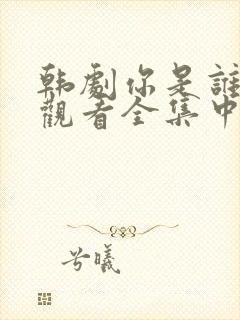 韩劇你是誰
觀看全集中
兮曦